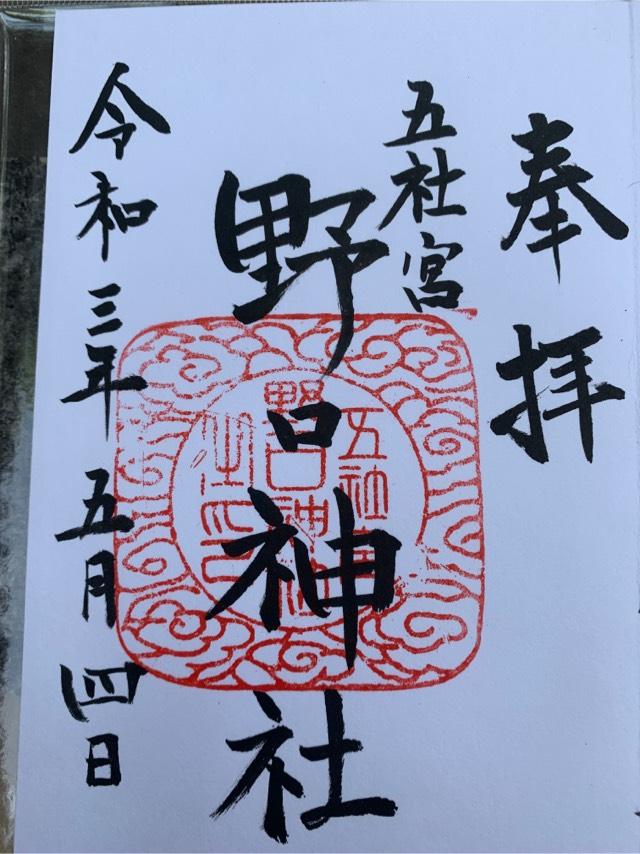 奉拝
五社宮
野口神社
令和三年五月四日
五社宮
野口神社
之印